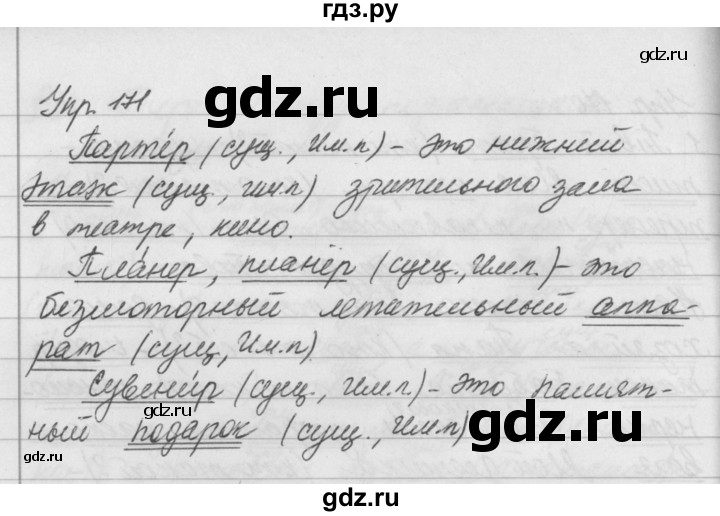 гдз.ру
gdz.ru
gdz.ru
Упр. 171
Парте́р (сущ., Им.п) – это нижний
этаж (сущ., им.п) зрительного зала
в театре, кино.
Пла́нер, планёр (сущ., Им.п.) – это
безмоторный летательный аппа-
рат (сущ, Им.п)
Сувени́р (сущ., Им.п.) – это памят-
gdz.ru
ный подарок (сущ., Им.п)
gdz.ru
gdz.ru